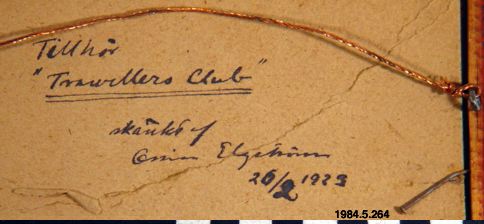 Tillhör
"Trawellers Club"
skänkt af
Ossian Elgström
26/2 1923
1984.5.264